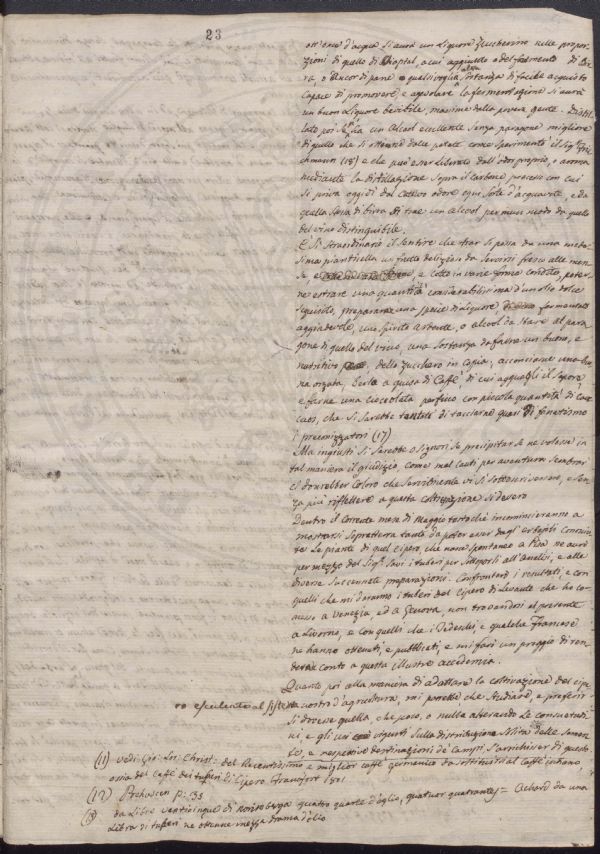 23
ott'once d'acqua si aurà un liquore zuccherino nelle propor-
zioni di quello di aggiunto del fermento di Bir-
ra, o ancor di pane o qualsivoglia altra sostanza di facile acquisto
capace di promovere e agevolare la fermentazione si aurà
un buon liquore bevibile, massime dalla povera gente. Distil-
lato poi se n'ha un alcool eccellente senza paragone migliore
di quello che si ottenne dalle patate come sperimentò il Sig.
(18) e che può esser liberato dall'odor proprio, o aroma
mediante la distillazione sopra il carbone processo con cui
si priva oggidì dal cattivo odore ogni sorte d'acquavite, e da
quella stessa di birra si trae un alcool per nulla
del vino distinguibile.
E sì straordinario il sentire che trar si possa da una mede-
sima pianticella un frutto delizioso da servirsi fresco alle men-
se, e e cotto in varie condito, poter-
ne estrare una quantità considerabilissima d'un olio dolce
squisito, preparare una specie di liquore, fermentato
aggradevole, uno spirito ardente, o alcool da stare al para
gone di quello del vino, una sostanza da farne un buono, e
nutritivo dello zucchero in copia, acconciarne una buo-
na orzata, berla a guisa di Caffè di cui agguagli il sapore
e farne una cioccolata perfino con piccola quantità di Cac
caos, che si sarebbe tentati di tacciarne quasi di fanatismo
i preconizzatori (17)
Ma ingiusti si sarebbe o Signori se precipitar se ne volesse in
tal maniera il giudizio, come mal cauti per avventura sembrar
ci dovrebber coloro che servilmente vi si sottoscrivessero, e sen-
za più riflettere a questa coltivazione si dessero
Dentro il corrente mese di Maggio tostochè incominceranno a
mostrarsi sopraterra tanto da poter esser dagl'erbajoli conosciu-
te le piante di quel cipero, che nasce spontaneo a Pisa ne aurò
per mezzo del Sig.r Savi i tuberi per sottoporli all'analisi, e alle
diverse succennate preparazioni. Confronterò i resultati, e con
quelli che mi daranno i tuberi del Cipero di Levante che ho com
messo a Venezia, ed a Genova, non trovandosi al presente
a Livorno, e con quelli che i Tedeschi, e qualche Francese
ne hanno ottenuti, e pubblicati, e mi farò un preggio di ren-
derne conto a questa illustre accademia.
Quanto poi alla maniera di adattare la coltivazione del cipe
ro esculento al siste
ma nostro d'agricoltura, mi parrebbe, che studiare, e preferir
si dovesse quella, che poco, o nulla alterando le consuetudi
ni e gli usi vigenti sulla distribuzione solita delle semen-
te, e respettive destinazioni de' campi s'arrichisser di questo
(11) vedi Gio: Lor: Christ: del Recentissimo e miglior caffè germanico da sostituirsi al caffè indiano,
ossia del Caffè dei tuberi di Cipero. Francfort 1801
(12) p: 35
da libre venticinque di ricavò quattro quarte d'oglio, quatuor quatrantes = Achard da una
Libra di tuberi ne ottenne mezza dramma d'olio